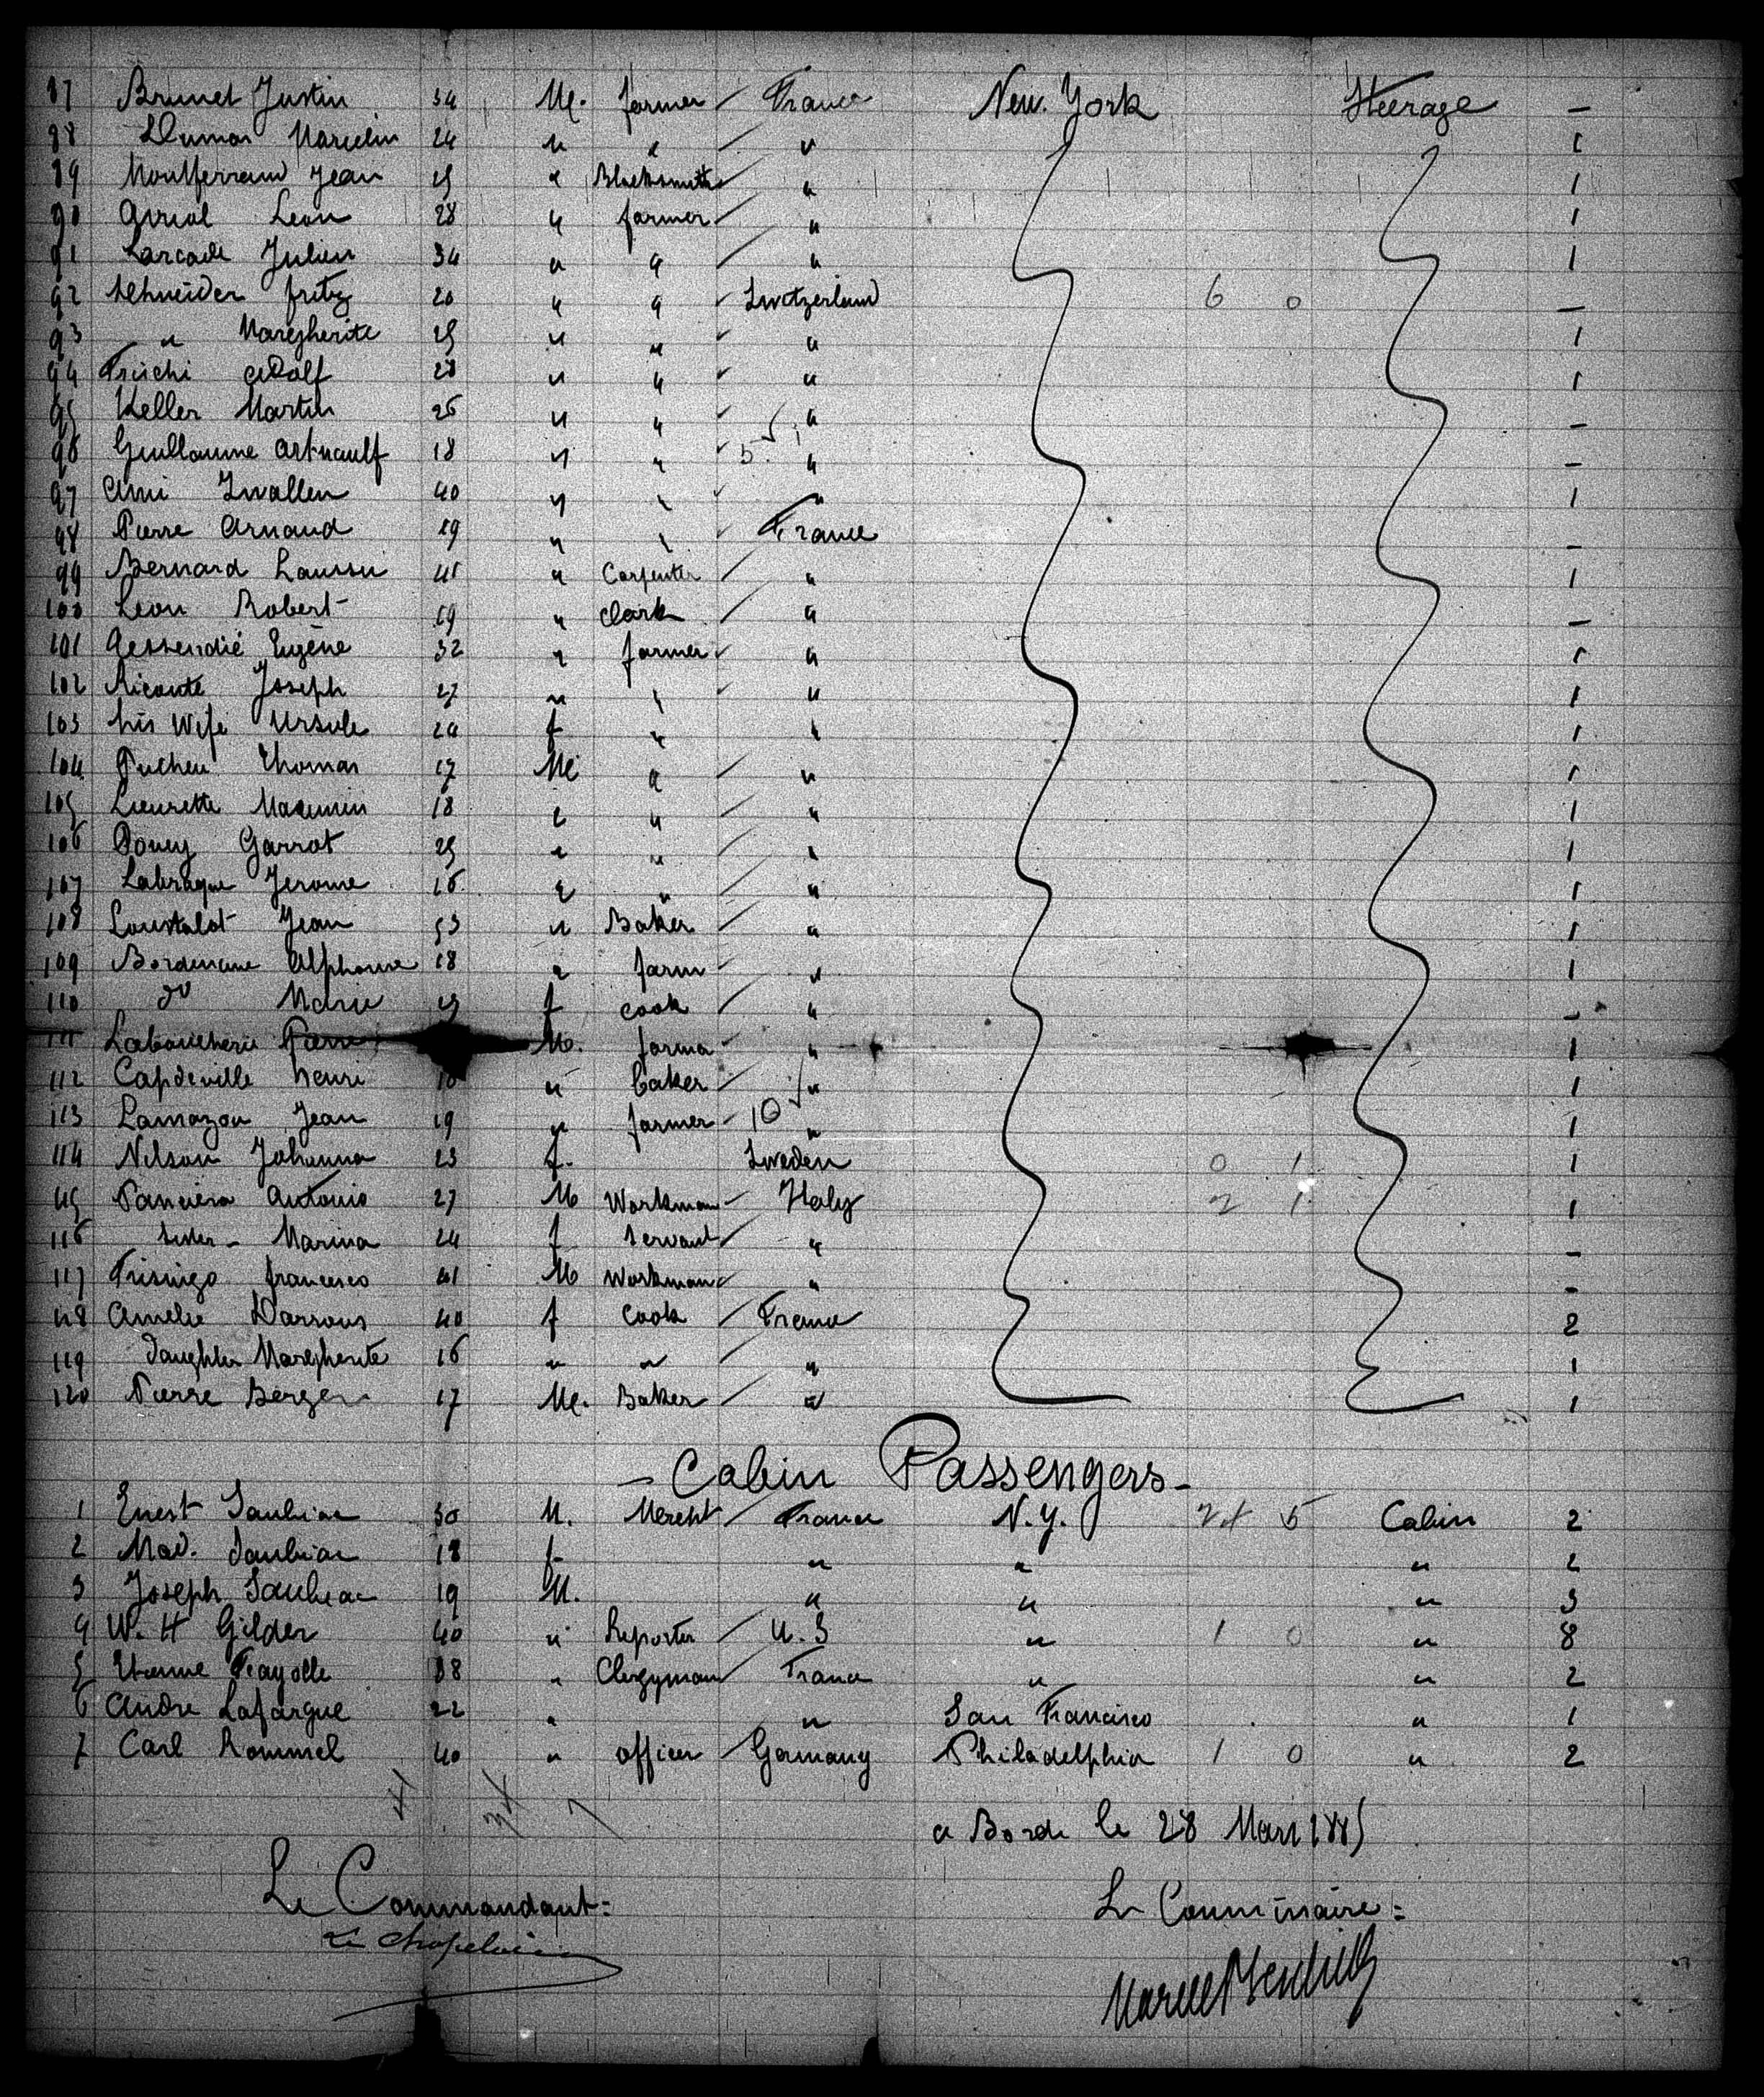 87 Brunet Justin 34 M. farmer France New. York Steerage –
88 Dumas Marcelin 24 " " " 1
89 Montferrand Jean 25 " Blacksmith " 1
90 Leon 28 " farmer " 1
91 Larcade Julien 34 " " " 1
92 Schneider fritz 20 " " Switzerland 6 0 –
93 " Margherite 25 " " " 1
94 Adolf 28 " " " 1
95 Keller Martin 26 " " " –
96 Guillaume 18 " " 5 " –
97 Ami Zwallen 40 " " " 1
98 Pierre Arnaud 29 " " France –
99 Bernard 45 " Carpenter " 1
100 Leon Robert 19 " Clark " –
101 Eugène 32 " farmer " 1
102 Joseph 27 " " " 1
103 his Wife Ursule 24 f " " 1
104 Pucheu Thomas 17 M " " 1
105 18 " " " 1
106 Garrot 25 " " " 1
107 Jerome 16 " " " 1
108 Loustalot Jean 53 " Baker " 1
109 Alphonse 18 " farm " 1
110 do Marie f cook " –
111 Laboucherie Pierre M. " 1
112 Capdeville henri " baker " 1
113 Lamazou Jean 19 " farmer 10 " 1
114 Nilson Johanna 23 f. Sweden 0 1 1
115 Antonio 27 M Workman Italy 2 1 1
116 Sister – Marina 24 f Servant " –
117 francesco 41 M Workman " –
118 Amelie 40 f Cook France 2
119 daughter Margherite 16 " " " 1
120 Pierre Berger 17 M. Baker " 1
– Cabin Passengers –
1 30 M. Mercht France N.Y. 5 Cabin 2
2 Mad. 18 f " " " 2
3 Joseph 19 M. " " " 3
4 W. H Gilder 40 " Reporter U. S " 1 0 " 8
5 Etienne Fayolle 38 " Clergyman France " " 2
6 Andre Lafargue 22 " " San Francisco " 1
7 Carl Rommel 40 " officer Germany Philadelphia 1 0 " 2
a Bord le 28 Mars 1885
Le Commandant: Le Commissaire: